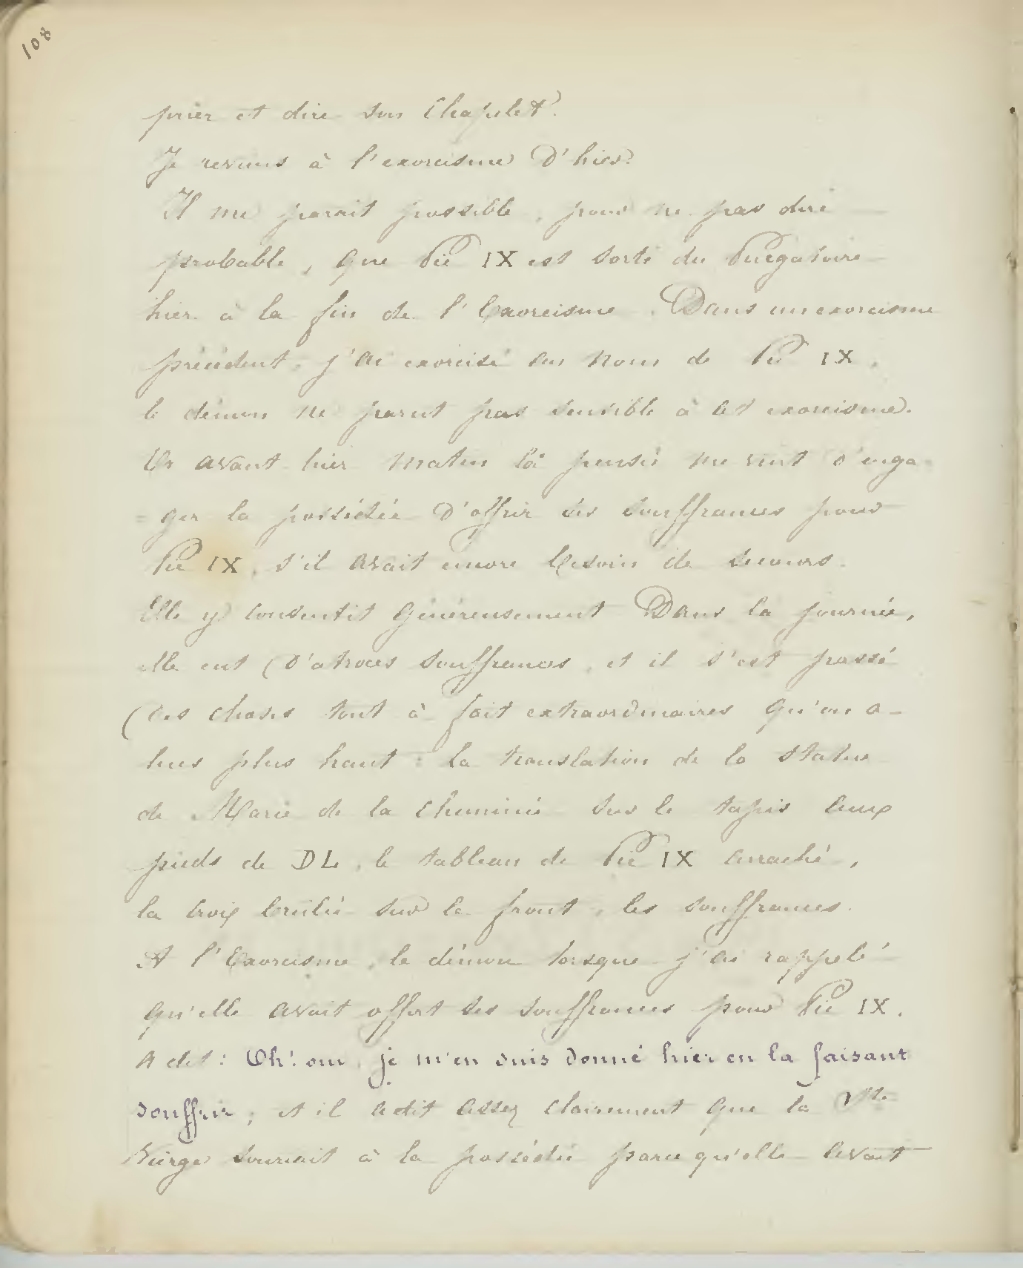 108
prier et dire son Chapelet.
Je reviens à l'exorcisme d'hier.
Il me parait possible, pour ne pas dire
probable, que Pie IX est sorti du Purgatoire
hier à la fin de l'Exorcisme. Dans un exorcisme
précédent, j'ai exorcisé au nom de Pie IX,
le démon ne parut pas sensible à cet exorcisme.
Or avant-hier matin la pensée me vint d'enga-
=ger la possédée d'offrir ses souffrances pour
Pie IX, s'il avait encore besoin de secours.
Elle y consentit généreusement Dans la journée,
elle eut (d'atroces souffrances, et il s'est passé
(des choses tout à fait extraordinaires qu'on a
lues plus haut : la translation de la statue
de Marie de la cheminée sur le tapis aux
pieds de DL, le tableau de Pie IX arraché,
la croix brûlée sur le front, les souffrances.
A l'Exorcisme, le démon lorsque j'ai rappelé
qu'elle avait offert ses souffrances pour Pie IX,
a dit : Oh! oui, je m'en suis donné hier en la faisant
souffrir ; et il a dit assez clairement que la Ste
Vierge souriait à la possédée parce qu'elle avait